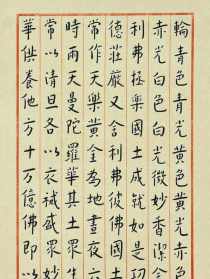 輪青色青光黃色黃光赤色
赤光白色白光微妙香潔舍
利弗極樂國土成就如是功
德莊嚴又舍利弗彼佛國土
常作天樂黃金為地晝夜六
時雨天曼陀羅華其土眾生
常以清旦各以衣祴盛眾妙
華供養他方十万億佛即以